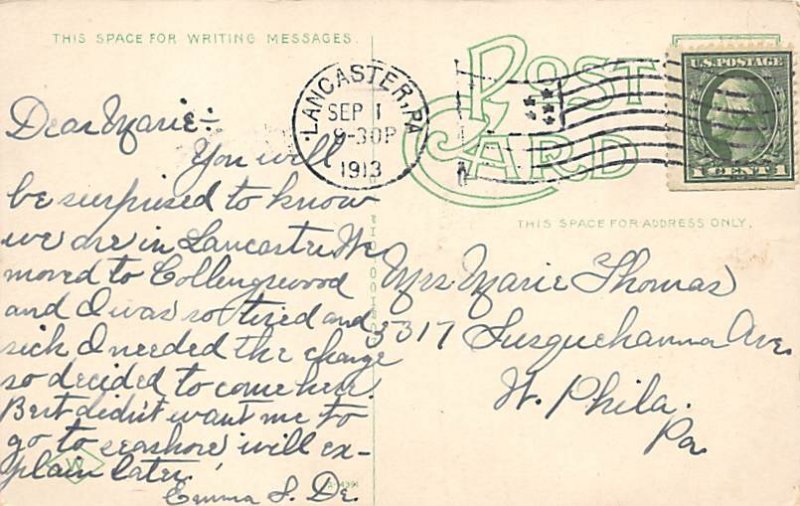 THIS SPACE FOR WRITING MESSAGES.
POST CARD
LANCASTER, PA
SEP 1
9-30P
1913
U.S. POSTAGE
1 CENT 1
THIS SPACE FOR ADDRESS ONLY.
Dear Marie:-
You will
be surprised to know
we are in Lancastre We
moved to Collingswood
and I was so tired and
sick I needed the change
so decided to come here.
Bert didn't want me to
go to seashore will ex-
plain later.
Emma S. De.
Mrs Marie Thomas
5317 Susquehanna Ave.
W. Phila.
Pa